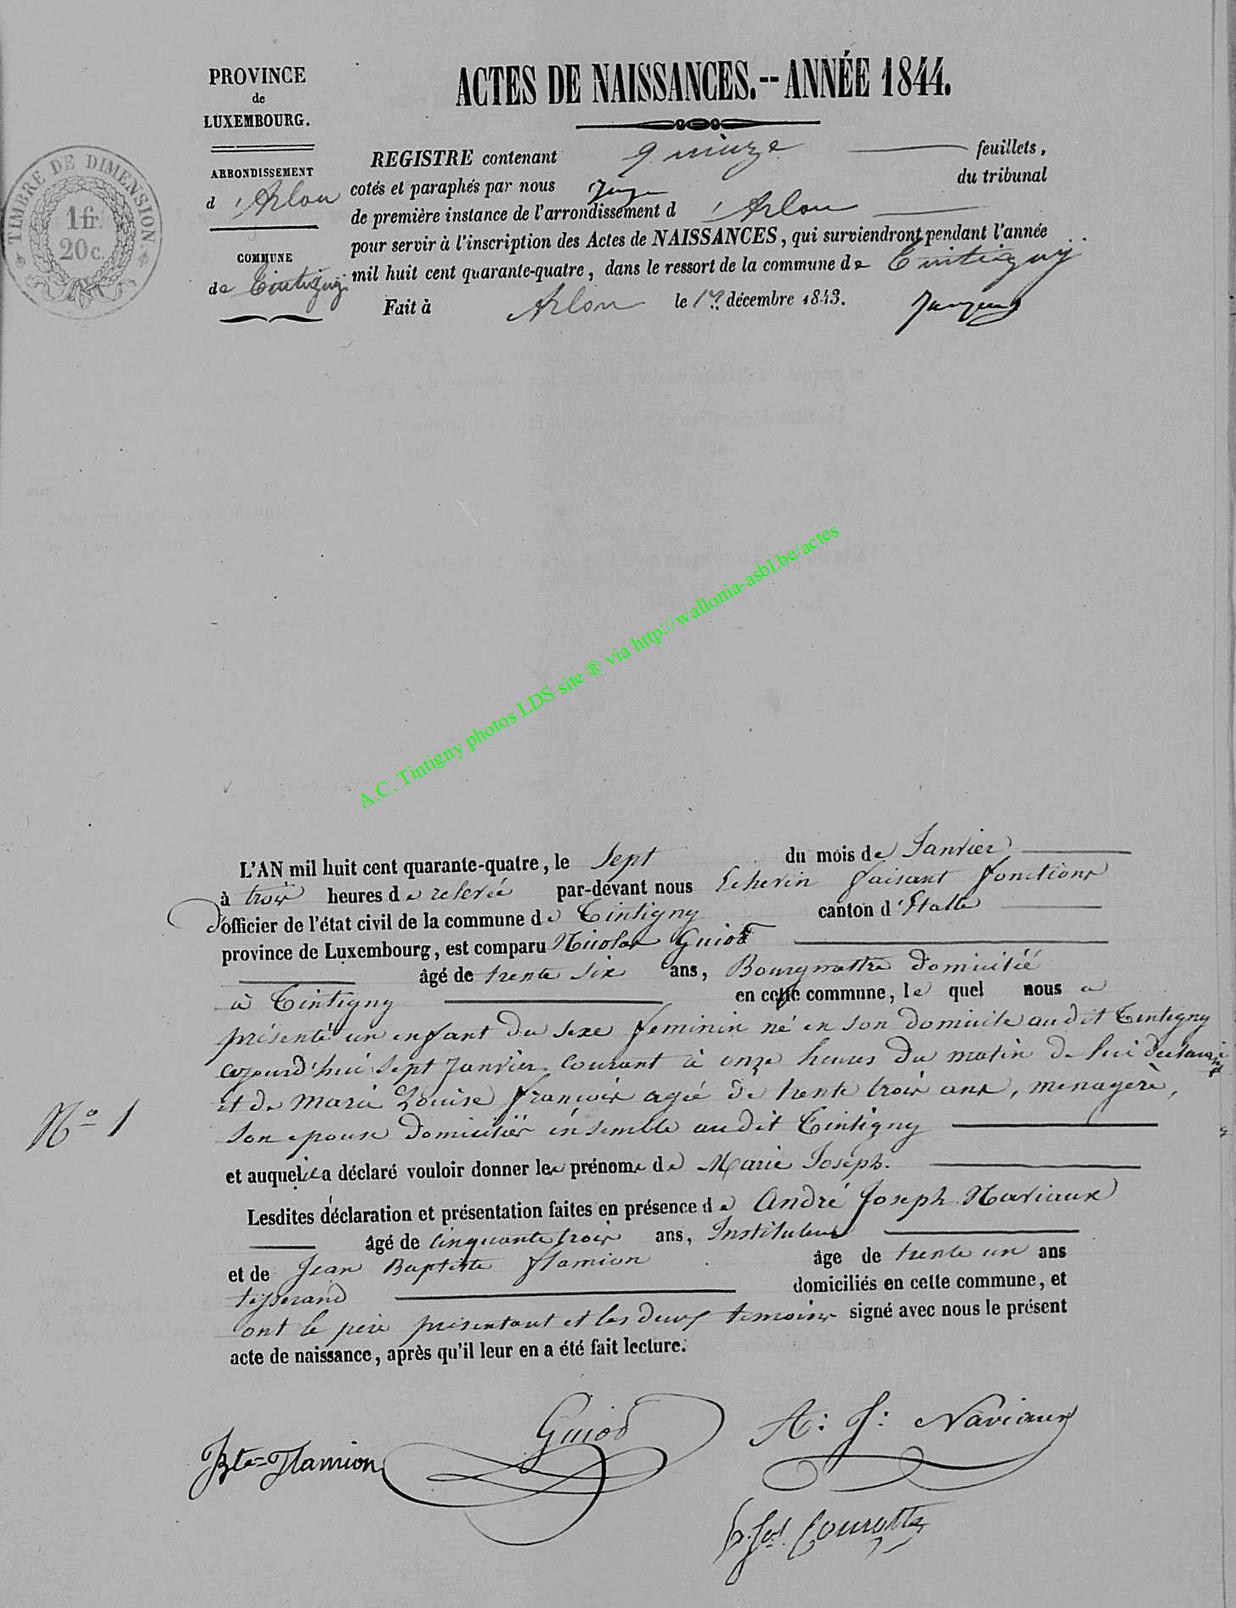 PROVINCE
de
LUXEMBOURG.
ARRONDISSEMENT
d 'Arlon
COMMUNE
de Tintigny
TIMBRE DE DIMENSION.
1 fr.
20 c.
ACTES DE NAISSANCES.-- ANNÉE 1844.
REGISTRE contenant quinze feuillets,
cotés et paraphés par nous Juge du tribunal
de première instance de l'arrondissement d 'Arlon
pour servir à l'inscription des Actes de NAISSANCES, qui surviendront pendant l'année
mil huit cent quarante-quatre, dans le ressort de la commune de Tintigny
Fait à Arlon le 17 décembre 1843.
A.C. Tintigny photos LDS site ® via http://wallonia-asbl.be/actes
L'AN mil huit cent quarante-quatre, le Sept du mois de Janvier
à trois heures de relevée par-devant nous Echevin faisant fonctions
d'officier de l'état civil de la commune de Tintigny canton d'Etalle
province de Luxembourg, est comparu Nicolas Guiot
âgé de trente six ans, Bourgmestre domicilié
à Tintigny en cette commune, le quel nous a
présenté un enfant du sexe feminin né en son domicile audit Tintigny
cejourd'hui sept Janvier courant à onze heures du matin de lui déclarant
et de Marie Louise françois agée de trente trois ans, menagère,
son epouse domiciliés ensemble audit Tintigny
N° 1
et auquel il a déclaré vouloir donner les prénoms de Marie Joseph.
Lesdites déclaration et présentation faites en présence de André Joseph Naviaux
âgé de cinquante trois ans, Instituteur
et de Jean Baptiste flamion âge de trente un ans
tisserand domiciliés en cette commune, et
ont le père présentant et les deux temoins signé avec nous le présent
acte de naissance, après qu'il leur en a été fait lecture.
Guiot
A: J: Naviaux
Bte= Flamion